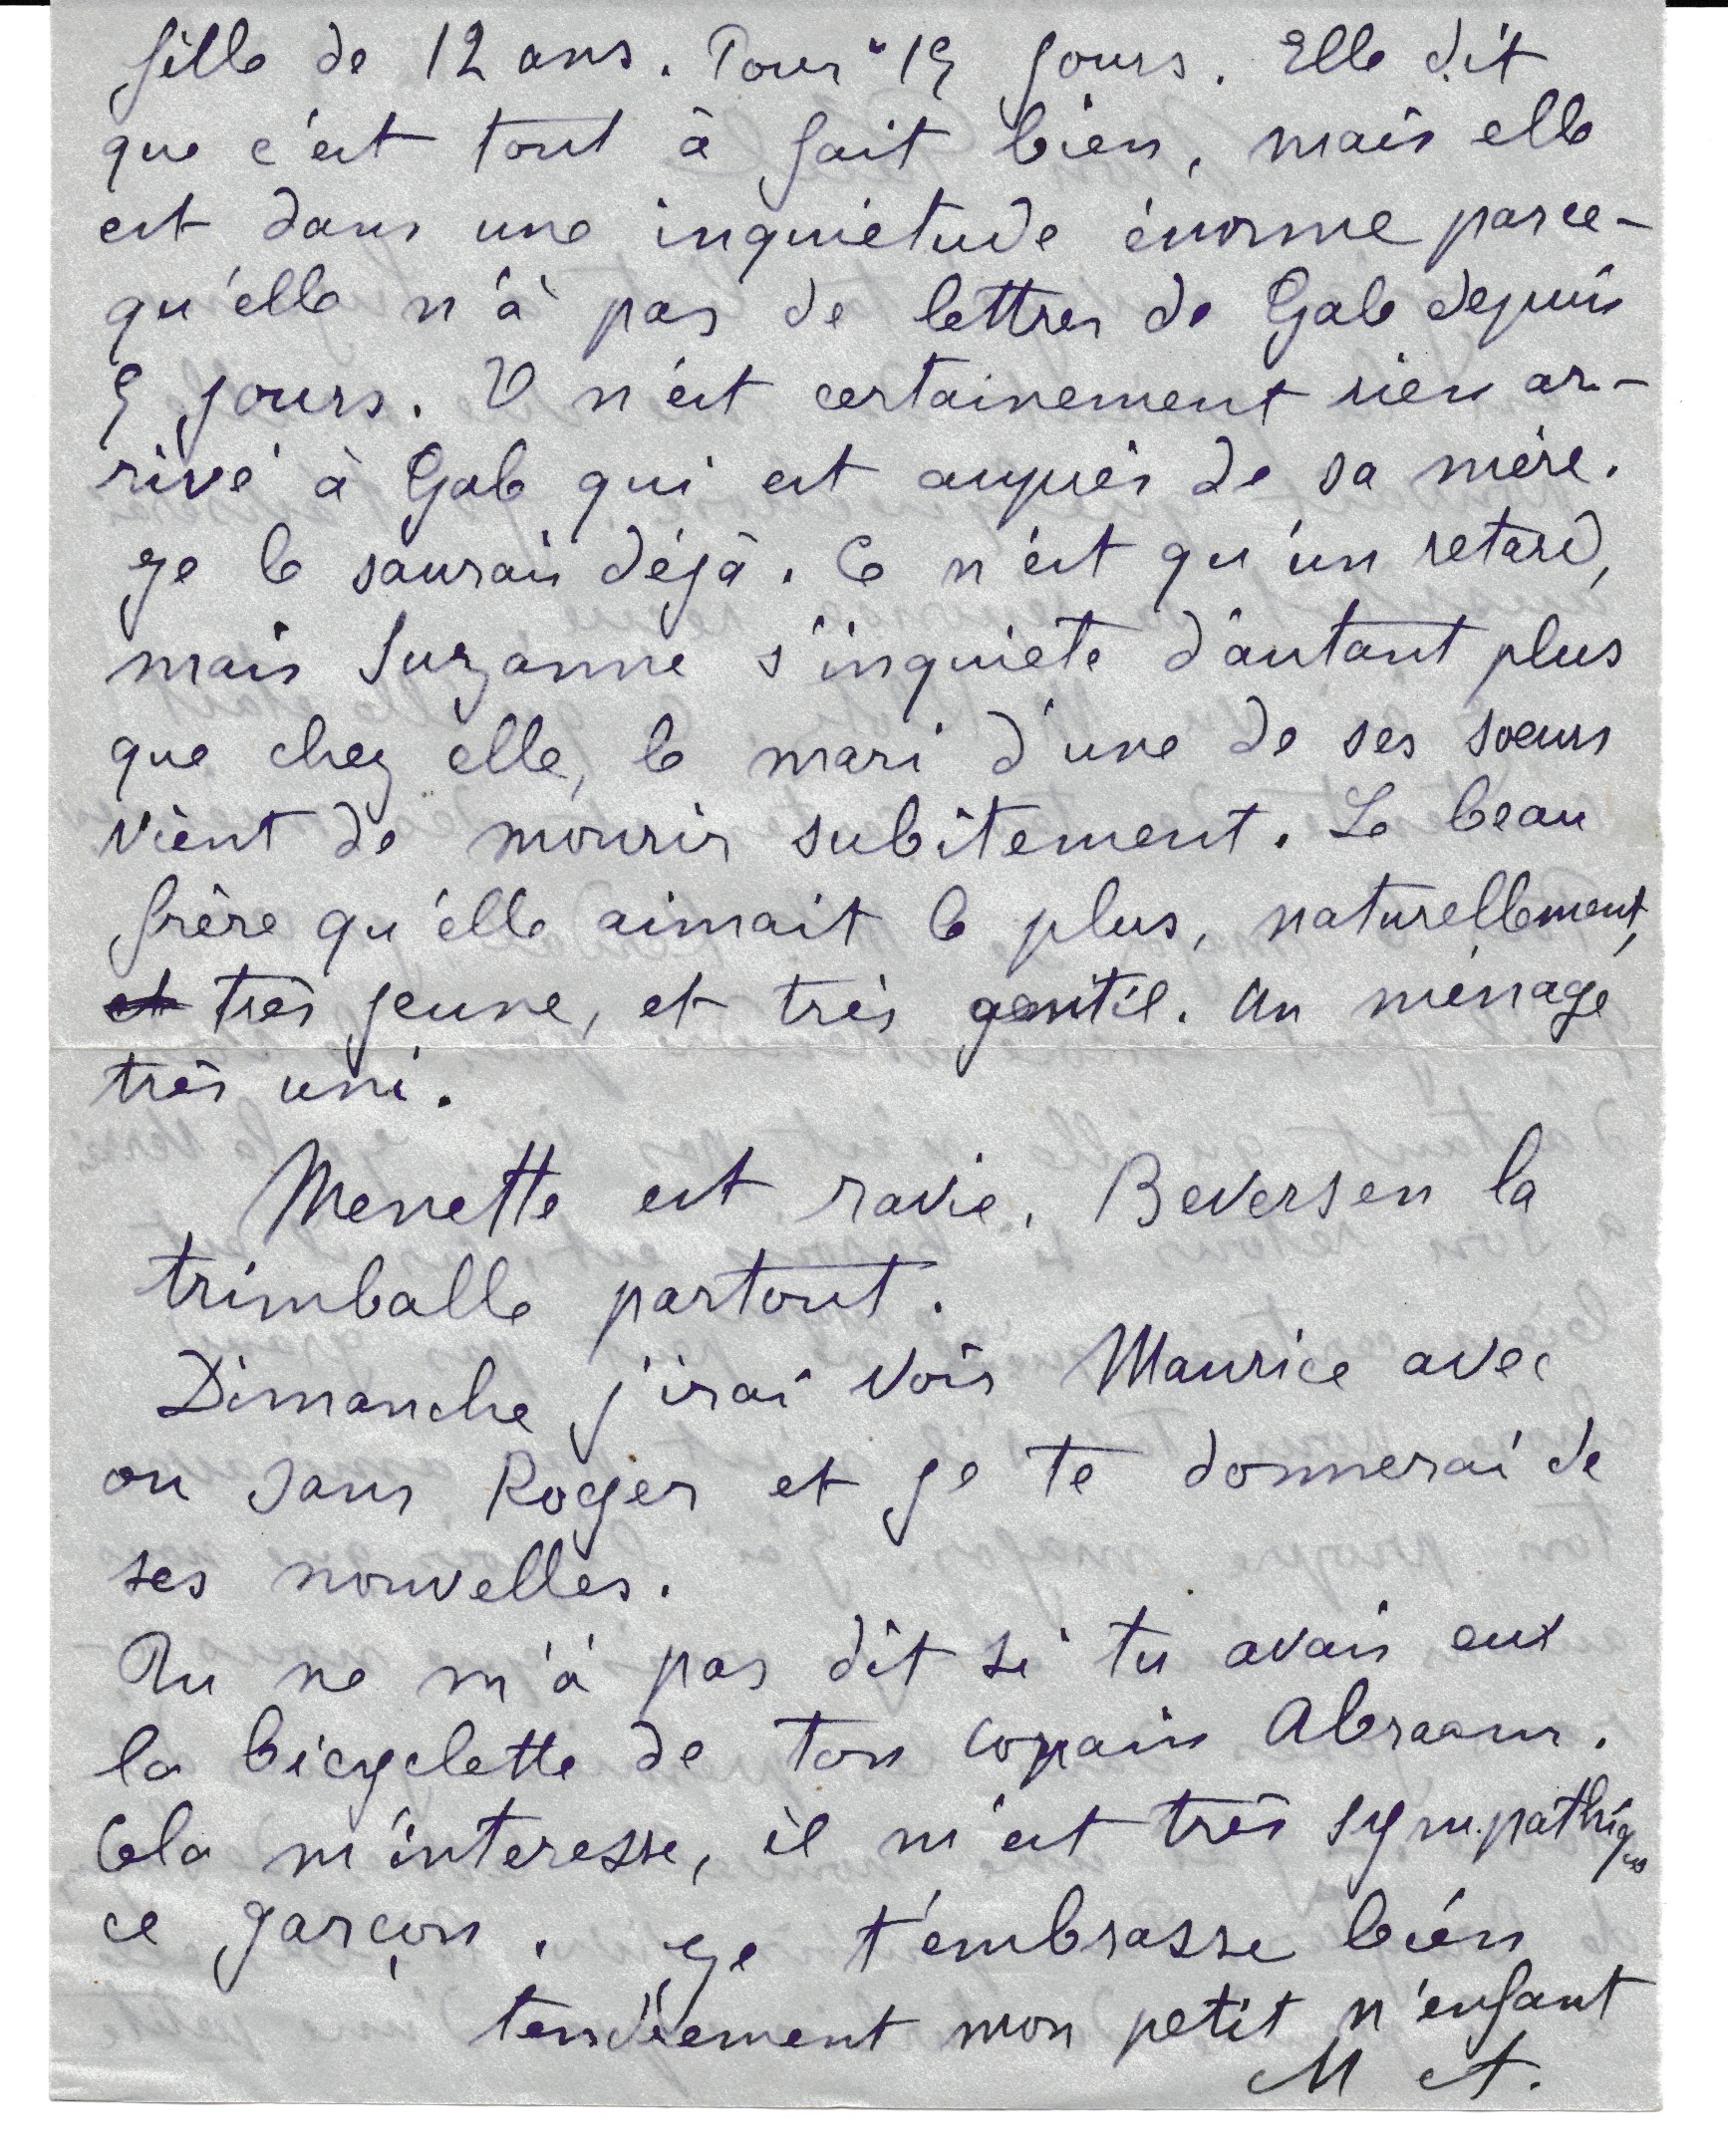 fille de 12 ans. Pour 15 jours. Elle dit
que c'est tout à fait bien, mais elle
est dans une inquiétude énorme parce-
qu'elle n'à pas de lettres de Gab depuis
5 jours. Il n'est certainement rien ar-
rivé à Gab qui est auprès de sa mère.
Je le saurais déjà. Ce n'est qu'un retard,
mais Suzanne s'inquiete d'autant plus
que chez elle, le mari d'une de ses soeurs
vient de mourir subitement. Le beau
frère qu'elle aimait le plus, naturellement,
et très jeune, et très gentil. Un ménage
très uni.
Menette est ravie. Beversen la
trimballe partout.
Dimanche j'irai voir Maurice avec
ou sans Roger et je te donnerai de
ses nouvelles.
Tu ne m'à pas dit si tu avais eut
la bicyclette de ton copain Abraam.
Cela m'interesse, il m'est très sympathique
ce garçon. Je t'embrasse bien
tendrement mon petit n'enfant
M A.